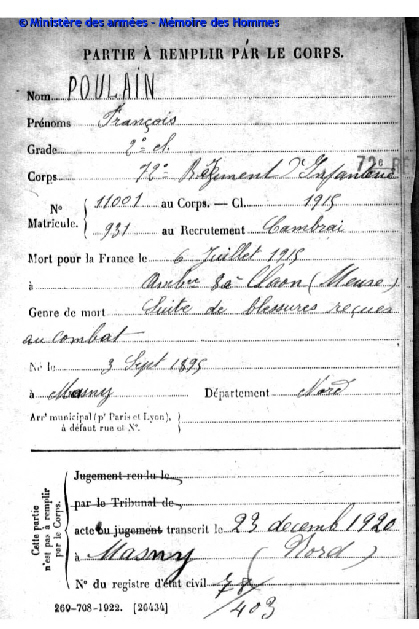 © Ministère des armées - Mémoire des Hommes
PARTIE À REMPLIR PAR LE CORPS.
Nom POULAIN
Prénoms François
Grade 2e cl.
Corps 72e Régiment d'Infanterie
N° Matricule. { 11001 au Corps. — Cl. 1915
931 au Recrutement Cambrai
Mort pour la France le 6 Juillet 1915
à Ambce 3/2 Claon (Meuse)
Genre de mort Suite de blessures reçues
au combat
Né le 3 Sept 1895
à Masny Département Nord
Arrt municipal (pr Paris et Lyon),
à défaut rue et N°.
Cette partie
n'est pas à remplir
par le Corps.
Jugement rendu le
par le Tribunal de
acte ou jugement transcrit le 23 decemb 1920
à Masny (Nord)
N° du registre d'état civil
403
269-708-1922. [26434]